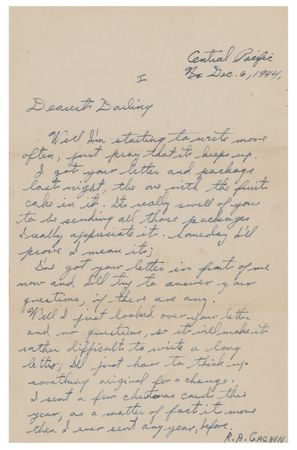 Central Pacific
Dec. 6, 1944,
I
Dearest Darling
Well I'm starting to write more
often, just pray that it keeps up.
I got your letter and package
last night, the one with the fruit
cake in it. It really swell of you
to be sending all those packages
I really appreciate it. Someday I'll
prove I mean it;
I've got your letter in front of me
now and I'll try to answer your
questions, if there are any.
Well I just looked over your letter
and no questions, so it will make it
rather difficult to write a long
letter, I'll just have to think up
something original for a change.
I sent a few Christmas cards this
year, as a matter of fact it more
then I ever sent any year, before.
R.A. GAGNON